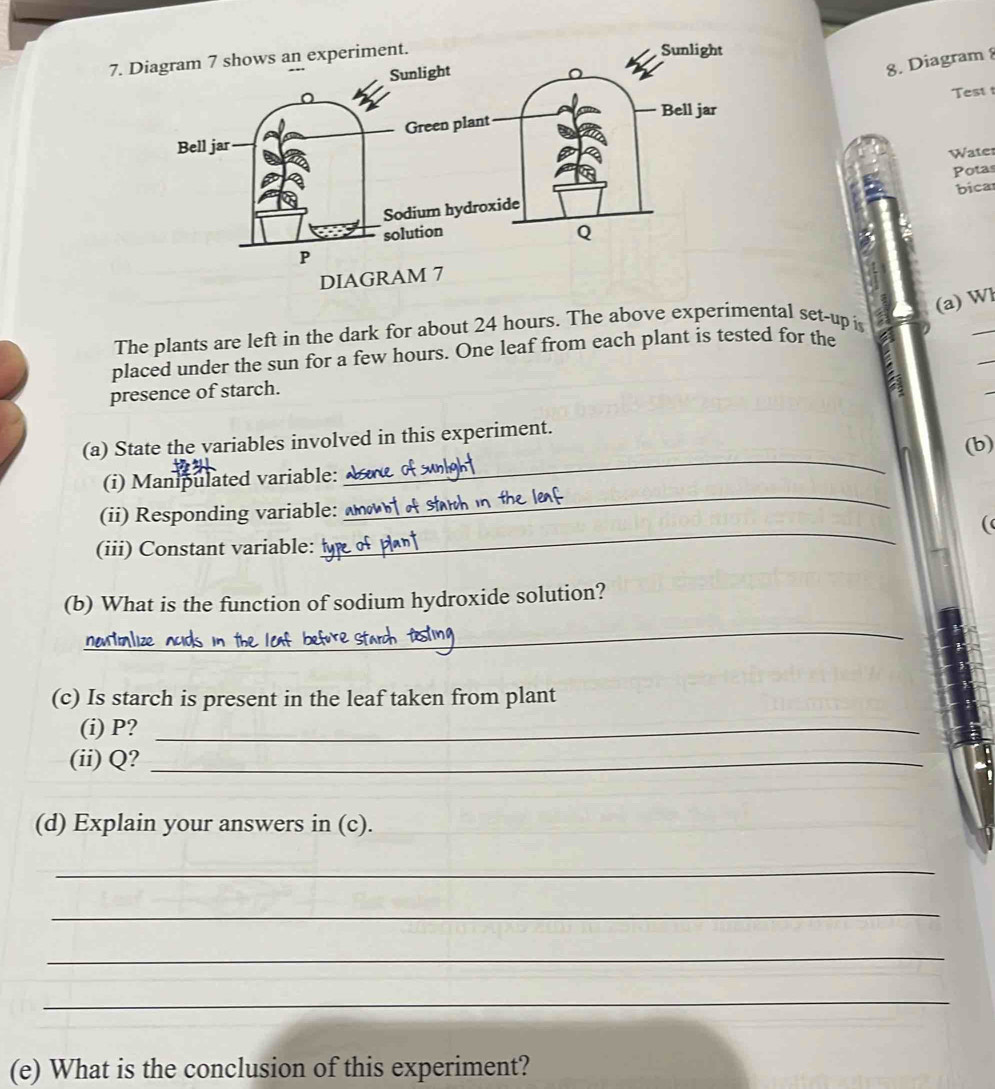 7. Diagram 7 shows an experiment.
Sunlight
Sunlight
Bell jar
Green plant
Bell jar
Sodium hydroxide
solution
P
Q
DIAGRAM 7
The plants are left in the dark for about 24 hours. The above experimental set-up is
placed under the sun for a few hours. One leaf from each plant is tested for the
presence of starch.
(a) State the variables involved in this experiment.
(i) Manipulated variable: absence of sunlight
(ii) Responding variable: amount of starch in the leaf
(iii) Constant variable: type of plant
(b) What is the function of sodium hydroxide solution?
neutralize acids in the leaf before starch testing
(c) Is starch is present in the leaf taken from plant
(i) P?
(ii) Q?
(d) Explain your answers in (c).
(e) What is the conclusion of this experiment?
8. Diagram 8
Test t
Water
Potas
bicar
(a) Wh
(b)